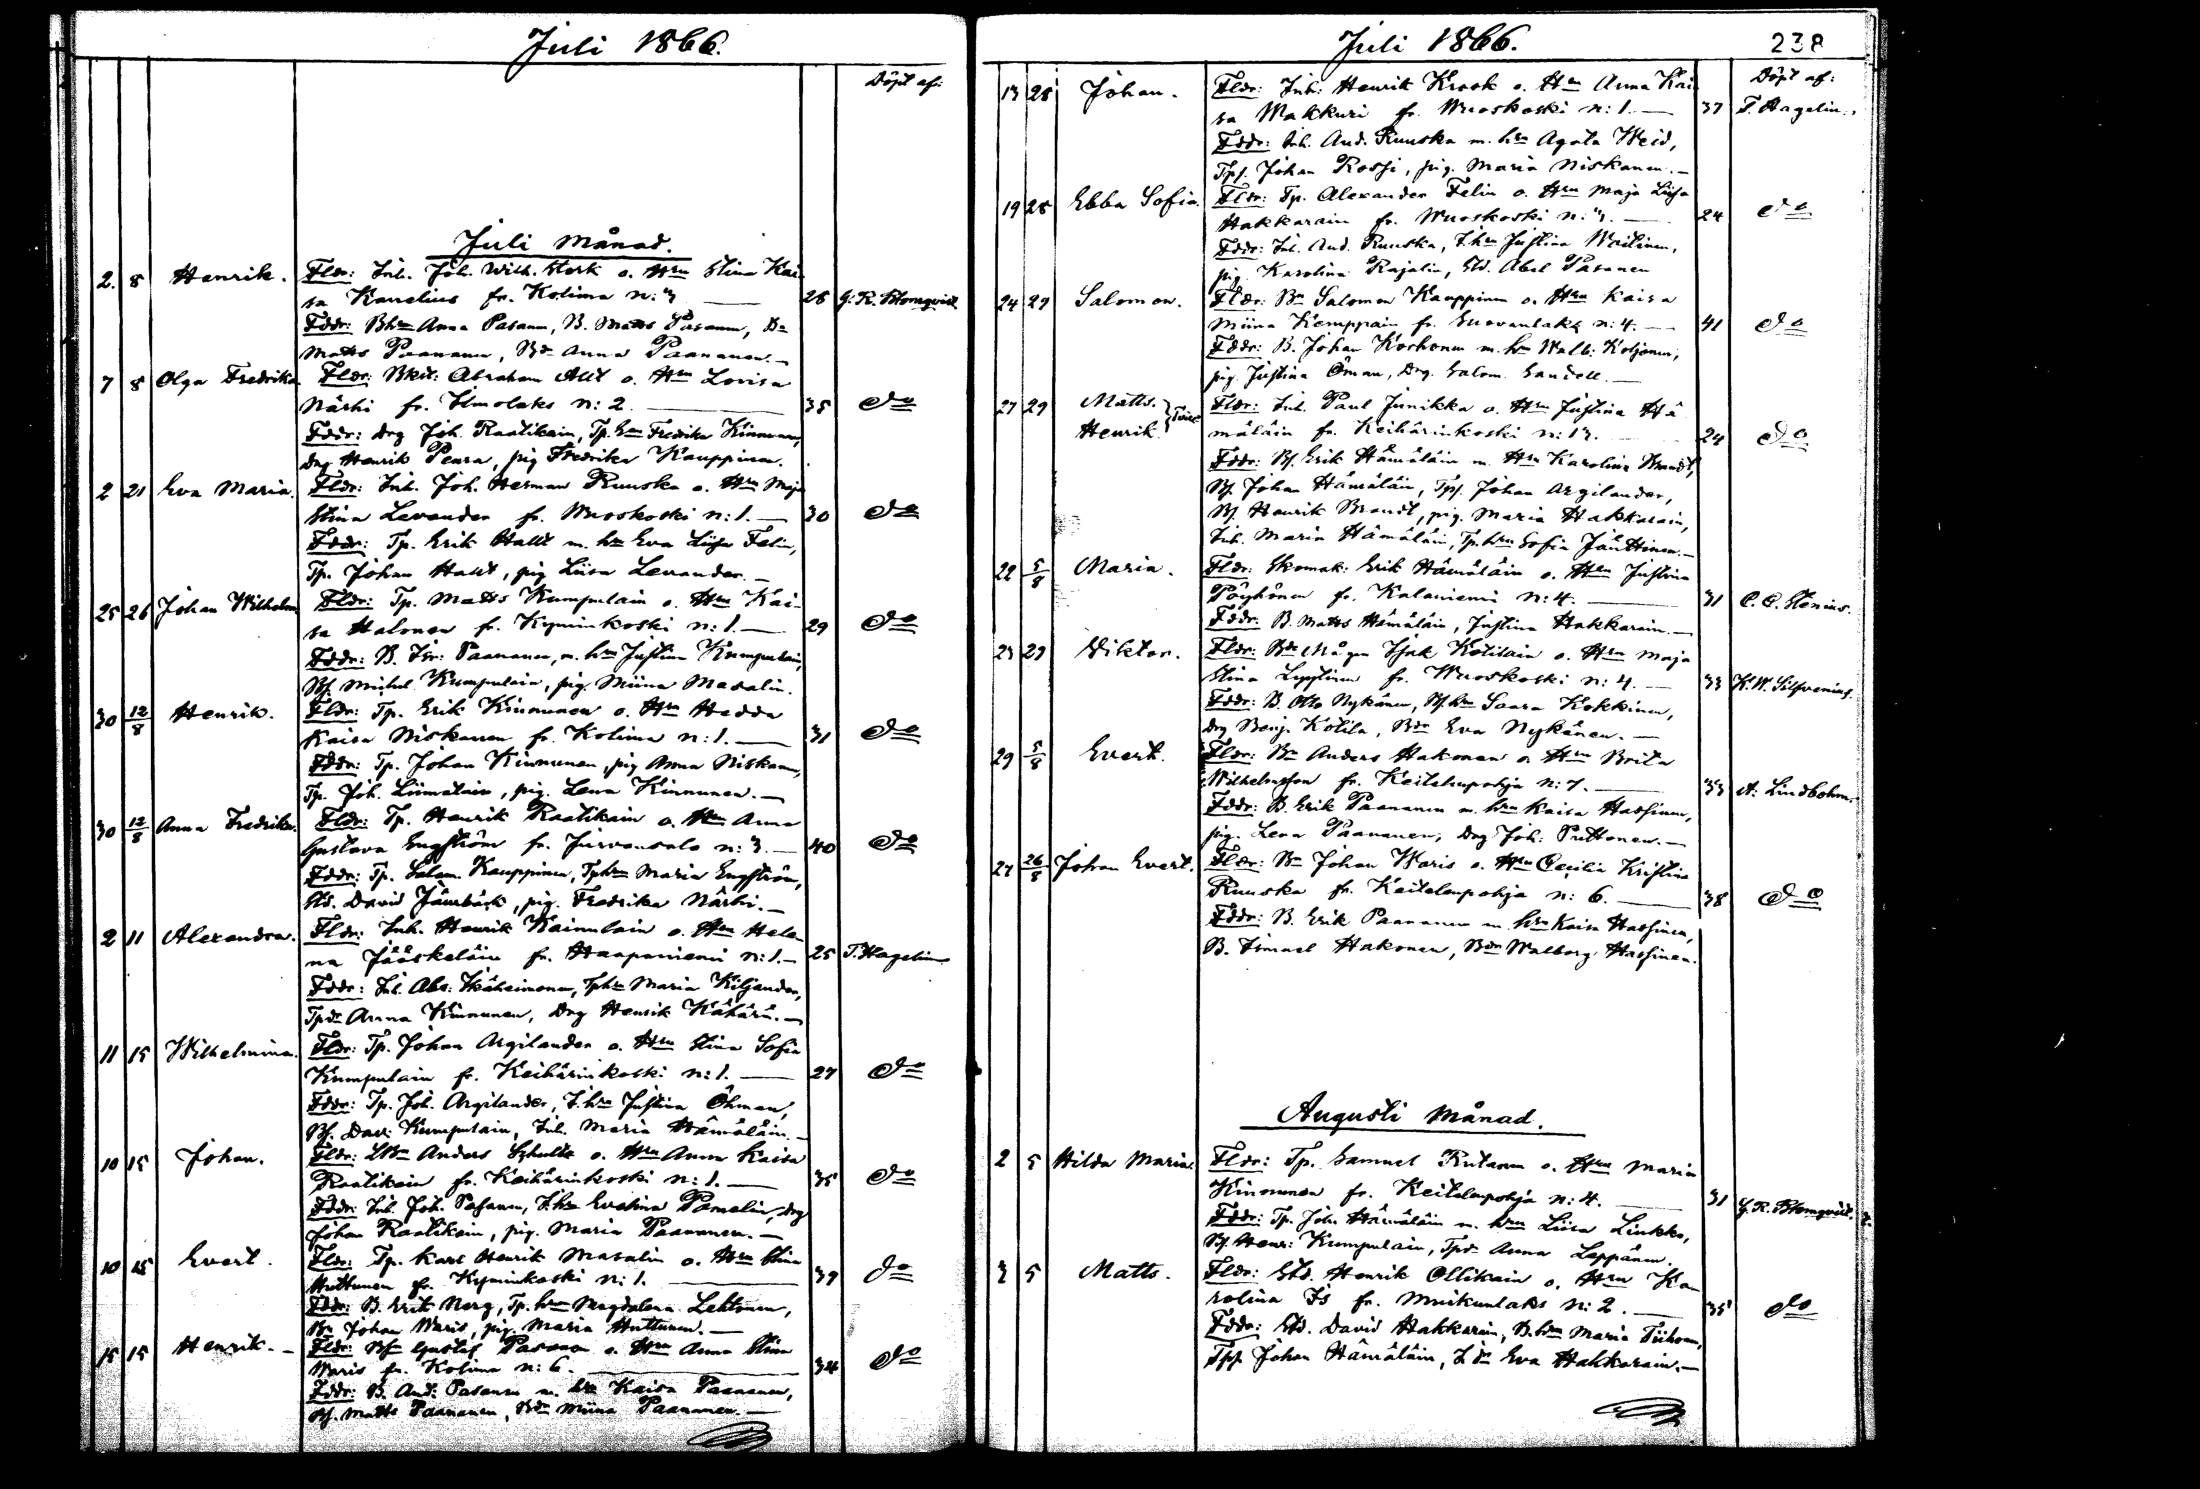 Juli 1866.
Döpt af:
Juli Månad.
2. 8 Henrik. Fldr: Inh. Joh. Wilh. Stark o. Hru Stina Kai-
sa Karelius fr. Kolima n: 3 28 G. R. Blomqvist
Fddr: Bhru Anna Pasanen, B. Matts Pasanen, Bs
Matts Paananen, Bdr Anna Paananen.
7 8 Olga Fredrika. Fldr: Abraham Ahlt o. Hru Lovisa
Närhi fr. Ilmolaks n: 2 35 do
Fddr: Drg Joh. Raatikain, Tp. hru Fredrika Kinnunen,
Drg Henrik Peura, pig Fredrika Kauppinen.
2 21 Eva Maria. Fldr: Inh. Joh. Herman Ruuska o. Hru Maja
Stina Levander fr. Wuoskoski n: 1. 30 do
Fddr: Tp. Erik Hallt m. hru Eva Liisa Felin,
Tp. Johan Hallt, pig Liisa Levander.
25 26 Johan Wilhelm. Fldr: Tp. Matts Kumpulain o. Hru Kai-
sa Halonen fr. Kyminkoski n: 1. 29 do
Fddr: B. Isr: Paananen, m. hru Justina Kumpulain,
Bs. Michel Kumpulain, pig. Miina Masalin.
30 12/8 Henrik. Fldr: Tp. Erik Kinnunen o. Hru Hedda
Kaisa Niskanen fr. Kolima n: 1. 31 do
Fddr: Tp. Johan Kinnunen, pig Anna Niskanen,
Tp. Joh. Liimatain, pig. Lena Kinnunen.
30 12/8 Anna Fredrika. Fldr: Tp. Henrik Raatikain o. Hru Anna
Gustava Engström fr. Jurvansalo n: 3. 40 do
Fddr: Tp. Salom. Kauppinen, Tphru Maria Engström,
Sld. David Jänrbäck, pig. Fredrika Närhi.
2 11 Alexandra. Fldr: Inh. Henrik Kainulain o. Hru Hele-
na Jääskeläin fr. Haapaniemi n: 1. 25 T. Hagelin
Fddr: Inh. Abr: Ikäheimonen, Tphru Maria Kiljander,
Tpdr Anna Kinnunen, Drg Henrik Kähärä.
11 15 Wilhelmina. Fldr: Tp. Johan Argilander o. Hru Stina Sofia
Kumpulain fr. Keihärinkoski n: 1. 27 do
Fddr: Tp. Joh. Argilander, I. hru Justina Öhman,
Bs. Dav: Kumpulain, Inh. Maria Hämäläin.
10 15 Johan. Fldr: Anders Schultz o. Hru Anna Kaisa
Raatikain fr. Keihärinkoski n: 1. 35 do
Fddr: Inh. Joh. Pasanen, I. hru Evelina Pamelin, drg
Johan Raatikain, pig. Maria Paananen.
10 15 Evert. Fldr: Tp. Karl Henrik Masalin o. Hru Stina
Huttunen fr. Kyminkoski n: 1. 39 do
Fddr: B. Erik Nerg, Tp. hru Magdalena Lehtonen,
Bs Johan Waris, pig. Maria Huttunen.
15 15 Henrik. Fldr: Bs Gustaf Pasanen o. Hru Anna Stina
Waris fr. Kolima n: 6. 34 do
Fddr: B. And: Pasanen m. hru Kaisa Paananen,
Bs. Matts Paananen, Bdr Miina Paananen.
Juli 1866.
238
Döpt af:
13 28 Johan. Fldr: Inh: Henrik Krook o. Hru Anna Kai-
sa Makkuri fr. Wuoskoski n: 1. 37 T. Hagelin.
Fddr: Inh. And. Ruuska m. hru Agata Weid,
Tps. Johan Rossi, pig. Maria Niskanen.
19 28 Ebba Sofia. Fldr: Tp. Alexander Felin o. Hru Maja Liisa
Hakkarain fr. Wuoskoski n: 3. 24 do
Fddr: Inh. And. Ruuska, I. hru Justina Waitinen,
pig. Karolina Rajalin, Sld. Abel Pasanen
24 29 Salomon. Fldr: Bn Salomon Kauppinen o. Hru Kaisa
Miina Kemppain fr. Suovanlaks n: 4. 41 do
Fddr: B. Johan Korhonen m. hru Walb: Koljonen,
pig. Justina Öman, Drg. Salom. Sandell.
27 29 Matts. Henrik. Fldr: Inh. Paul Junikka o. Hru Justina Hä-
mäläin fr. Keihärinkoski n: 13. 24 do
Fddr: Bs. Erik Hämäläin m. Hru Karolina Brandt,
Bs. Johan Hämäläin, Tps. Johan Argilander,
Bs Henrik Brandt, pig. Maria Hakkarain,
Inh. Maria Hämäläin, Tp. hru Sofia Jänttinen.
22 5/8 Maria. Fldr: Skomak: Erik Hämäläin o. Hru Justina
Pöyhönen fr. Kalaniemi n: 4. 31 C. C. Stenius.
Fddr: B. Matts Hämäläin, Justina Hakkarain.
23 29 Viktor. Fldr: Bn Mågen Isak Kotilain o. Hru Maja
Stina Leppinen fr. Wuoskoski n: 4. 33 K. W. Silfvenius.
Fddr: B. Otto Nykänen, Bs. hru Saara Kokkinen,
drg Benj. Kotila, Bdr Eva Nykänen.
29 5/8 Evert. Fldr: Bn Anders Hakonen o. Hru Brita
Wilhelmsson fr. Keitelenpohja n: 7. 33 A. Lindbohm.
Fddr: B. Erik Paananen m. hru Kaisa Hassinen,
pig. Lena Paananen, Drg Joh: Puttonen.
27 26/8 Johan Evert. Fldr: Bn Johan Waris o. Hru Cecilia Kristina
Ruuska fr. Keitelenpohja n: 6. 38 do
Fddr: B. Erik Paananen m hru Kaisa Hassinen,
B. Ismael Hakonen, Bdr Walborg Hassinen.
Augusti Månad.
2 5 Hilda Maria. Fldr: Tp. Samuel Rutanen o. Hru Maria
Kinnunen fr. Keitelenpohja n: 4. 31 G. R. Blomqvist.
Fddr: Tp. Joh. Hämäläin m. hru Liisa Linkko,
Bs. Henr: Kumpulain, Tpdr Anna Leppänen.
3 5 Matts. Fldr: Sld. Henrik Ollikain o. Hru Ka-
rolina Is fr. Muikunlaks n: 2. 35 do
Fddr: Sld. David Hakkarain, B. hru Maria Tiihonen,
Tps Johan Hämäläin, I. dr Eva Hakkarain.